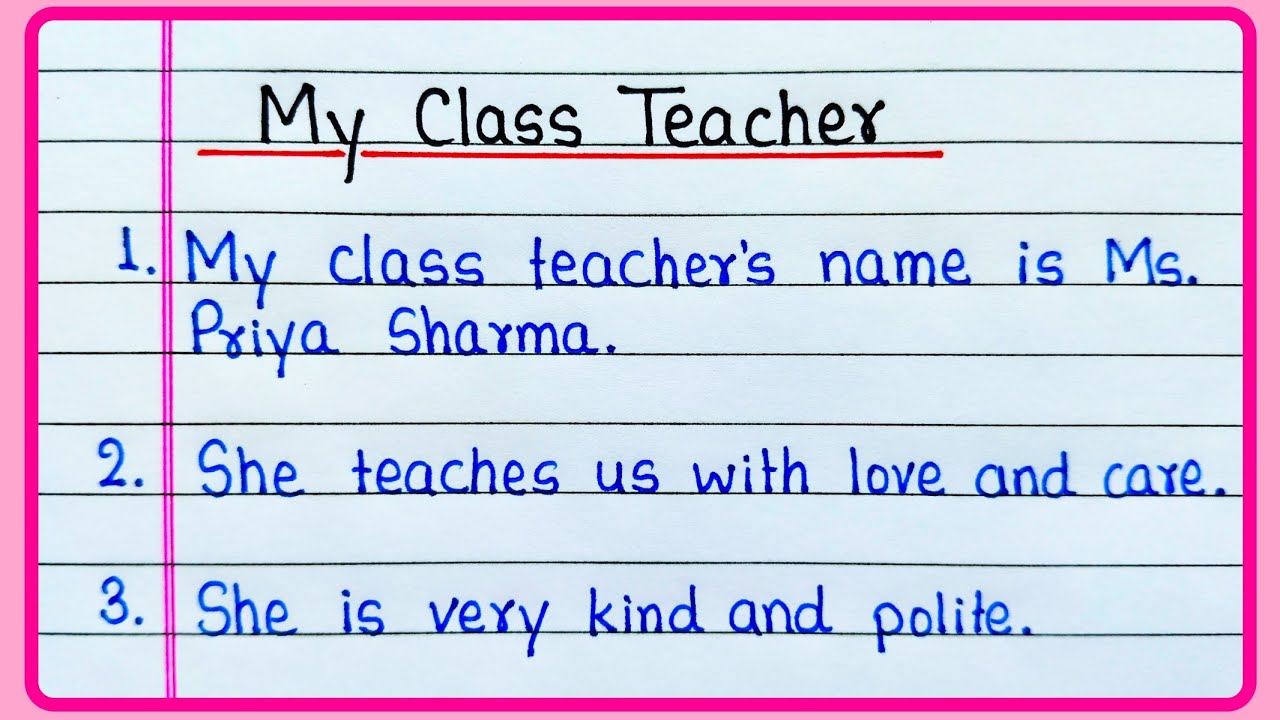 My Class Teacher
1. My class teacher's name is Ms.
Priya Sharma.
2. She teaches us with love and care.
3. She is very kind and polite.